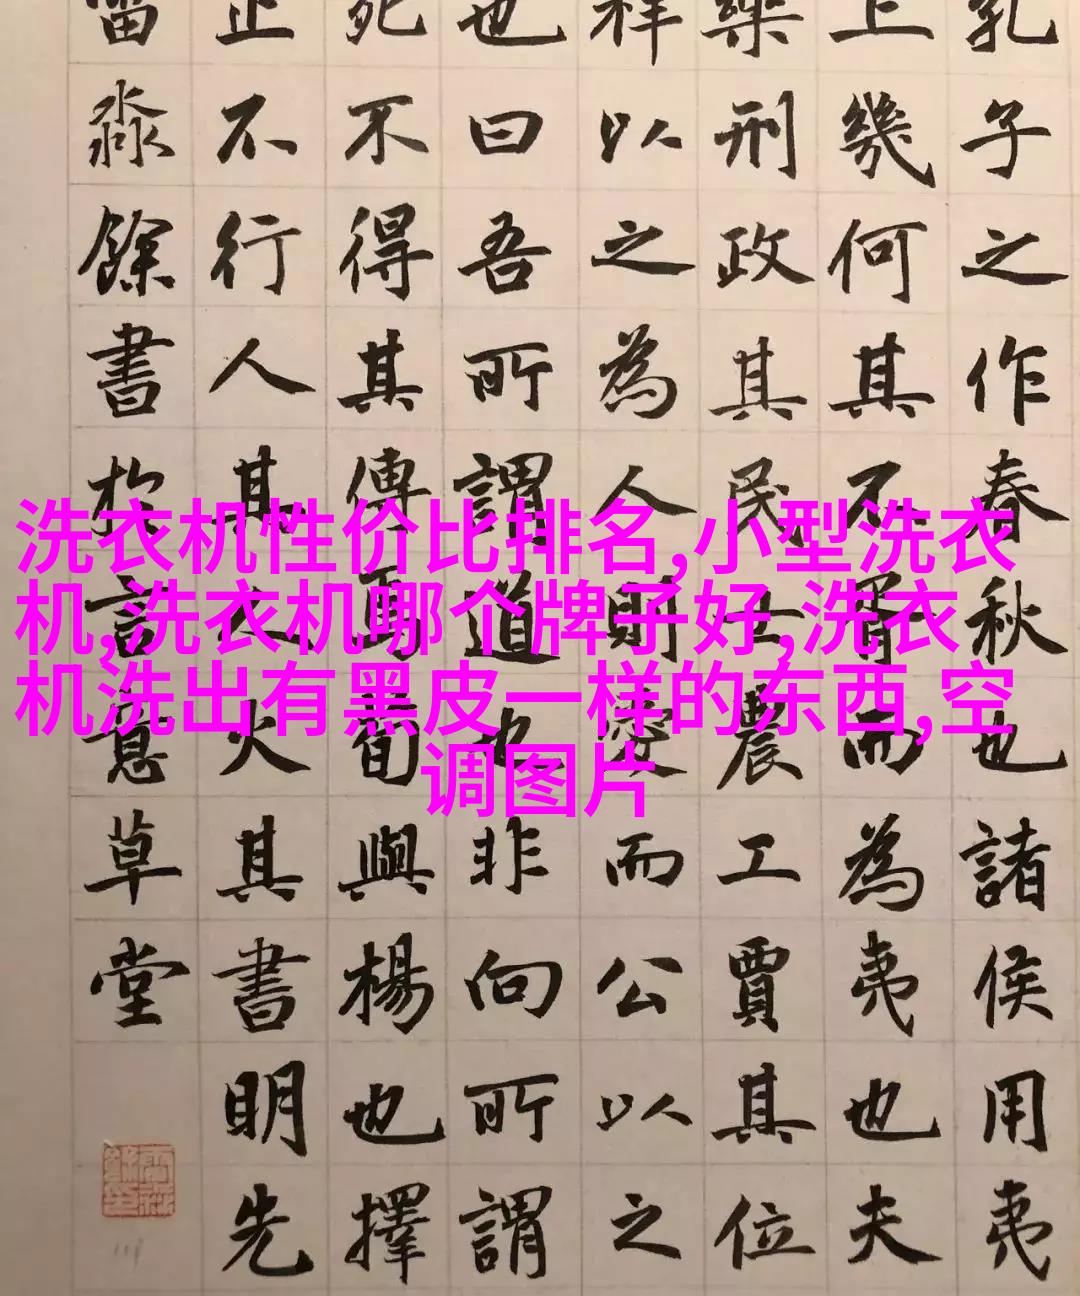 洗衣机性价比排名,小型洗衣
机,洗衣机哪个牌子好,洗衣
机洗出有黑皮一样的东西,空
调图片
孔子之作春秋也諸侯用夷
上幾何其不胥而為夷也夫
樂刑政其民士農工賈其位
祥以之為人則愛而公以之
也曰吾所謂道也非向所謂
死不得其傳焉荀與楊也擇
止不行人其人火其書明先
淼餘書於意草堂